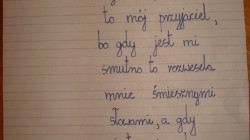 to mój przyjaciel,
bo gdy jest mi
smutno to rozwesela
mnie śmiesznymi
słowami, a gdy